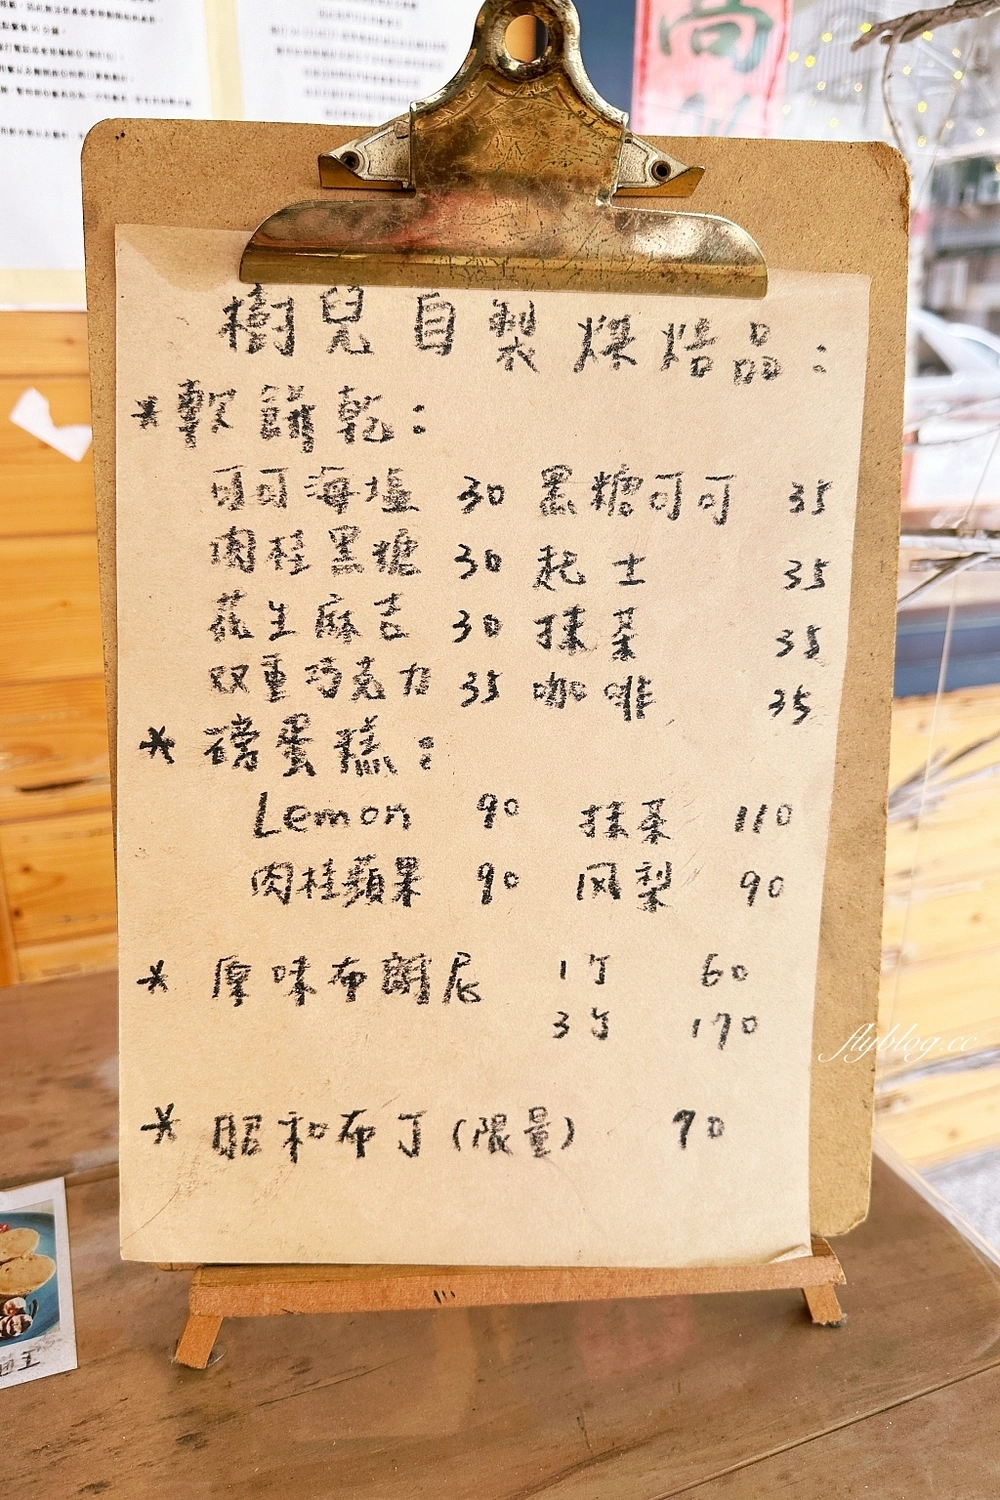 樹兒自製烘焙品：
*軟餅乾：
可可海塩 30 黑糖可可 35
肉桂黑糖 30 起士 35
花生麻吉 30 抹茶 35
双重巧克力 35 咖啡 35
*磅蛋糕：
Lemon 90 抹茶 110
肉桂蘋果 90 凤梨 90
*原味布朗尼 1个 60
3个 170
*昭和布丁(限量) 90
flyblog.cc